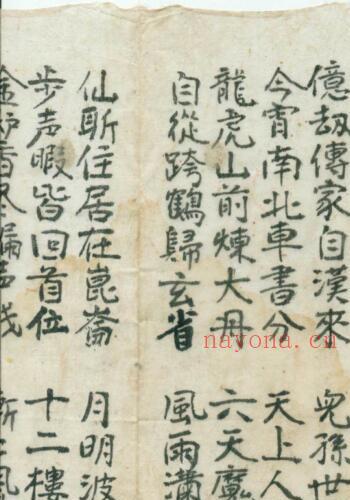 億劫傳家自漢來 兒孫世
今宵南北車書分 天上人
龍虎山前煉大丹 六天魔
自從跨鶴歸玄省 風雨瀟
仙聖住居在崑崙 月明波
步声暇皆回首位 十二樓
金炉香
nayona.cn